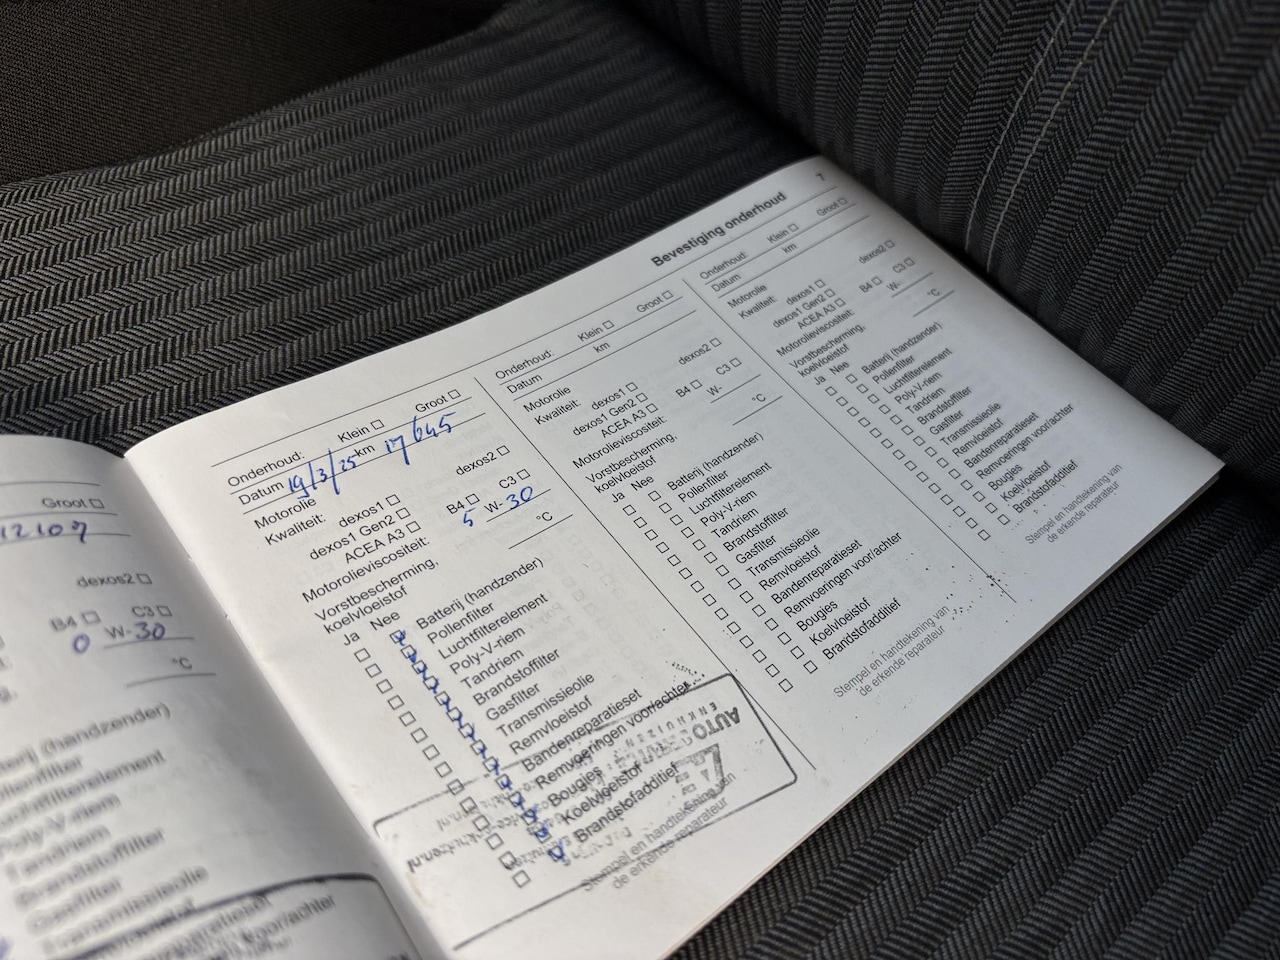 Groot
12107
dexos2
B4 C3
0 W- 30
°C
Bevestiging onderhoud 7
Onderhoud: Klein Groot
Datum 19/3/25 km 17645
Motorolie
Kwaliteit: dexos1 dexos2
dexos1 Gen2
ACEA A3 B4 C3
Motorolieviscositeit: 5 W- 30
Vorstbescherming,
koelvloeistof °C
Ja Nee
Batterij (handzender)
Pollenfilter
Luchtfilterelement
Poly-V-riem
Tandriem
Brandstoffilter
Gasfilter
Transmissieolie
Remvloeistof
Bandenreparatieset
Remvoeringen voor/achter
Bougies
Koelvloeistof
Brandstofadditief
Stempel en handtekening van
de erkende reparateur
AUTO
ENKHUIZEN
Onderhoud: Klein Groot
Datum km
Motorolie
Kwaliteit: dexos1 dexos2
dexos1 Gen2
ACEA A3 B4 C3
Motorolieviscositeit: W-
Vorstbescherming,
koelvloeistof °C
Ja Nee
Batterij (handzender)
Pollenfilter
Luchtfilterelement
Poly-V-riem
Tandriem
Brandstoffilter
Gasfilter
Transmissieolie
Remvloeistof
Bandenreparatieset
Remvoeringen voor/achter
Bougies
Koelvloeistof
Brandstofadditief
Stempel en handtekening van
de erkende reparateur
Onderhoud: Klein Groot
Datum km
Motorolie
Kwaliteit: dexos1 dexos2
dexos1 Gen2
ACEA A3 B4 C3
Motorolieviscositeit: W-
Vorstbescherming,
koelvloeistof °C
Ja Nee
Batterij (handzender)
Pollenfilter
Luchtfilterelement
Poly-V-riem
Tandriem
Brandstoffilter
Gasfilter
Transmissieolie
Remvloeistof
Bandenreparatieset
Remvoeringen voor/achter
Bougies
Koelvloeistof
Brandstofadditief
Stempel en handtekening van
de erkende reparateur